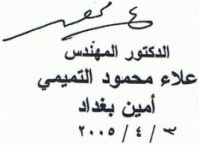 الدكتور المهندس
علاء محمود التميمي
أمين بغداد
٣ / ٤ / ٢٠٠٥